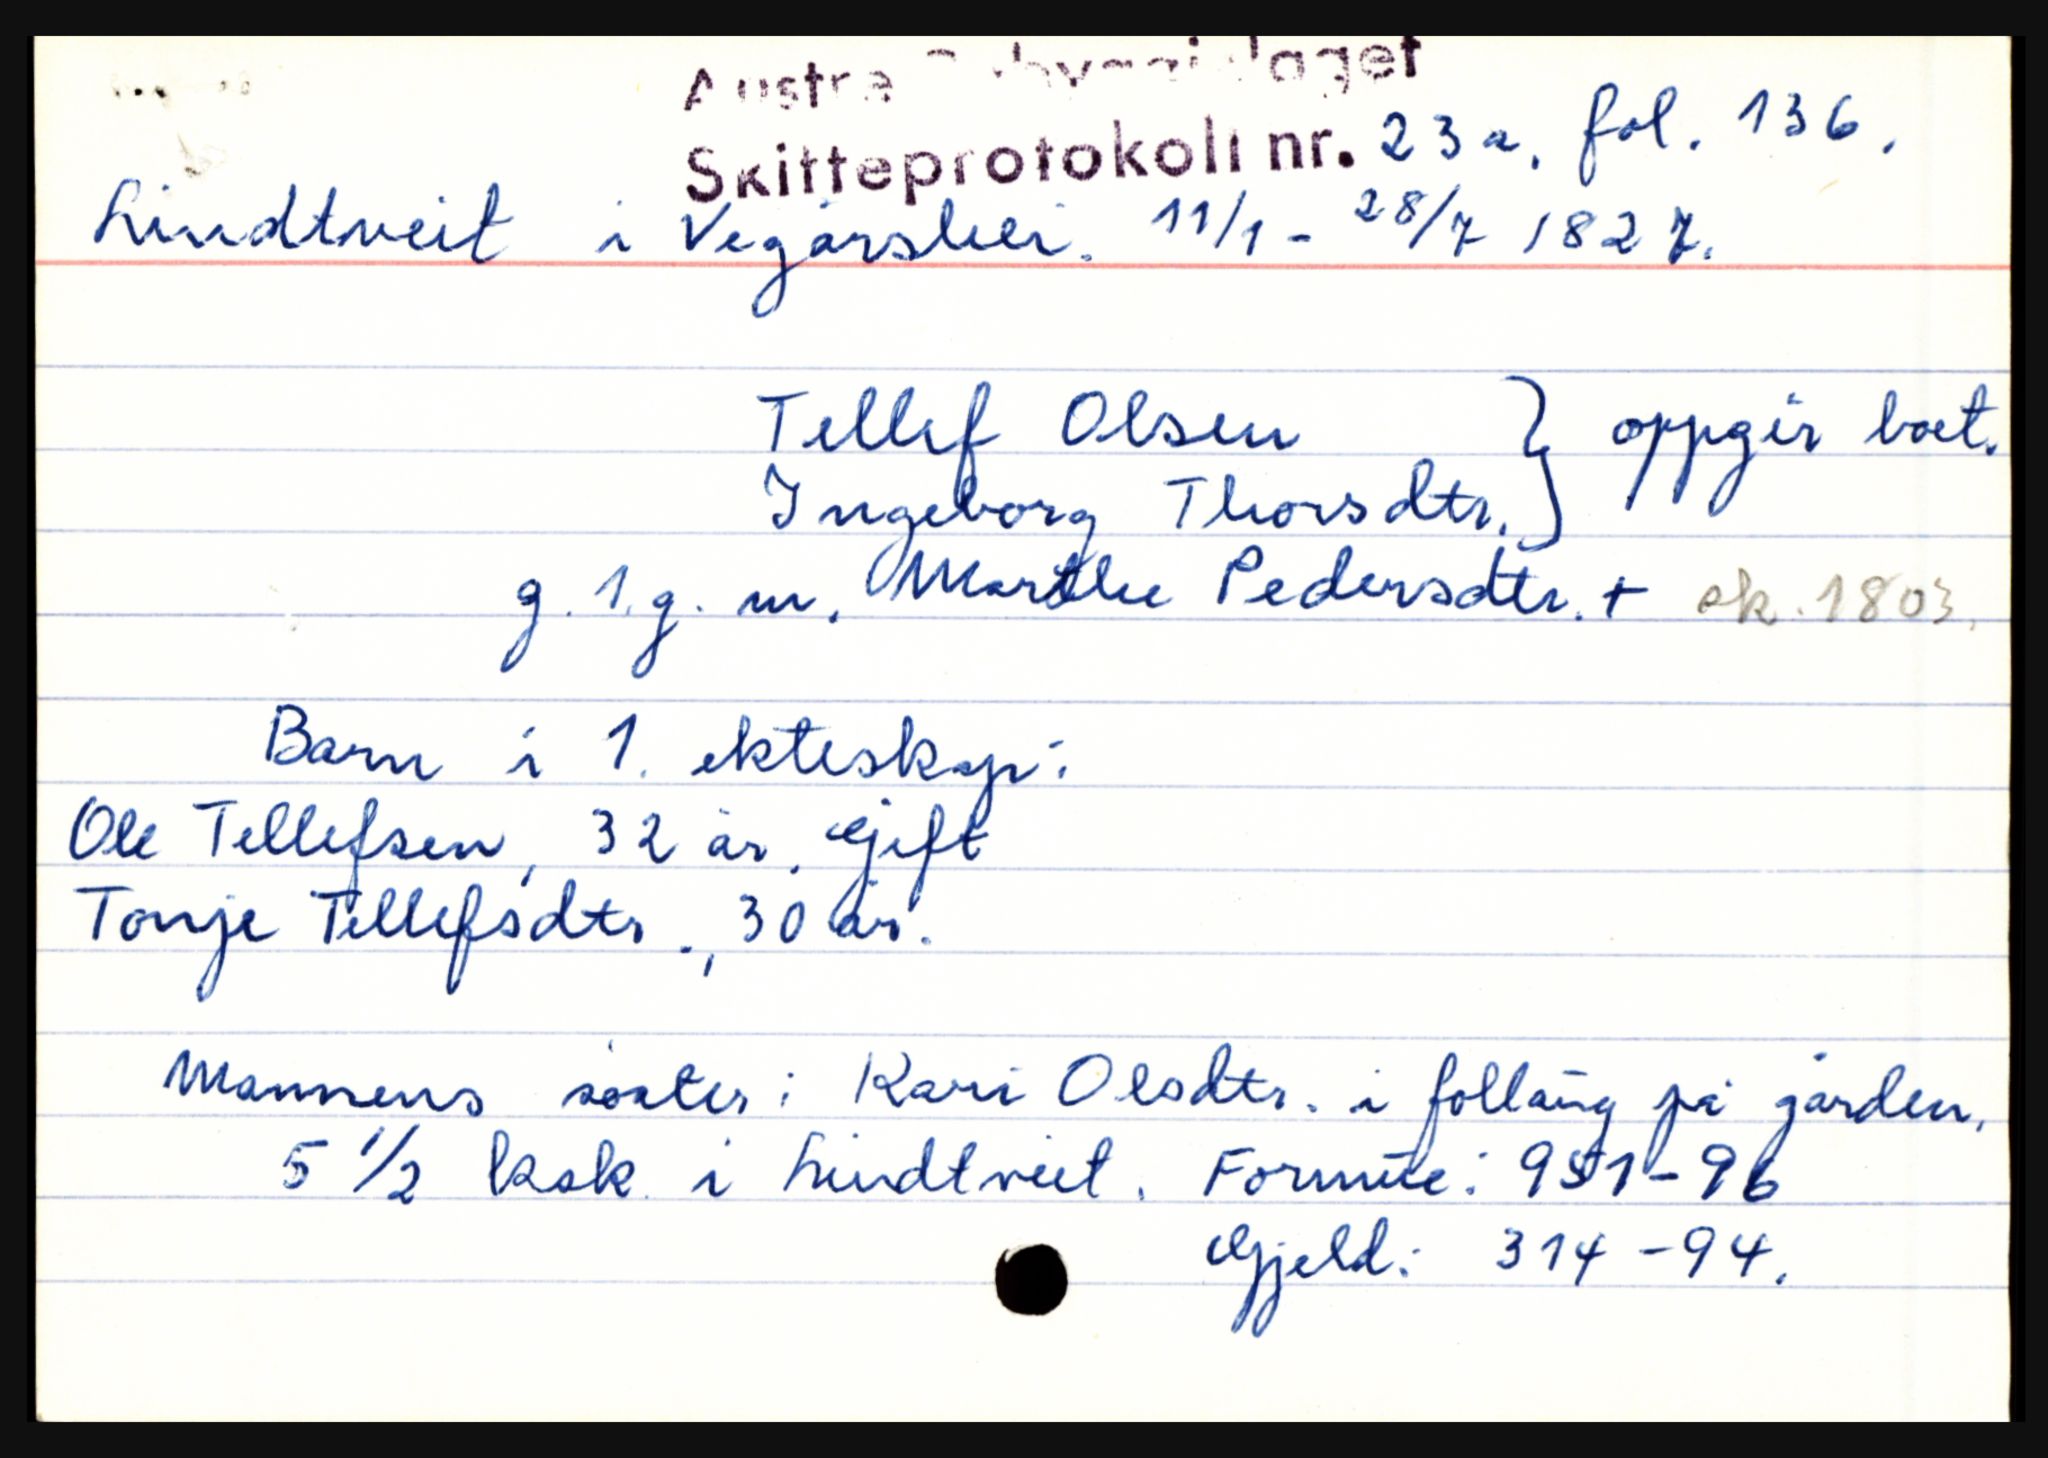 Austre
Skifteprotokoll nr. 23a, fol. 136.
Lindtveit i Vegårshei. 11/1 - 28/7 1827.
Tellef Olsen } oppgir boet.
Ingeborg Thorsdtr.
g. 1. g. m. Marthe Pedersdtr. + sk. 1803.
Barn i 1. ekteskap:
Ole Tellefsen, 32 år. Gjift
Tonje Tellefsdtr., 30 år.
Mannens søster: Kari Olsdtr. i follaug på gården.
5 1/2 ksk. i Lindtveit. Formue: 951-96
Gjeld: 314-94.